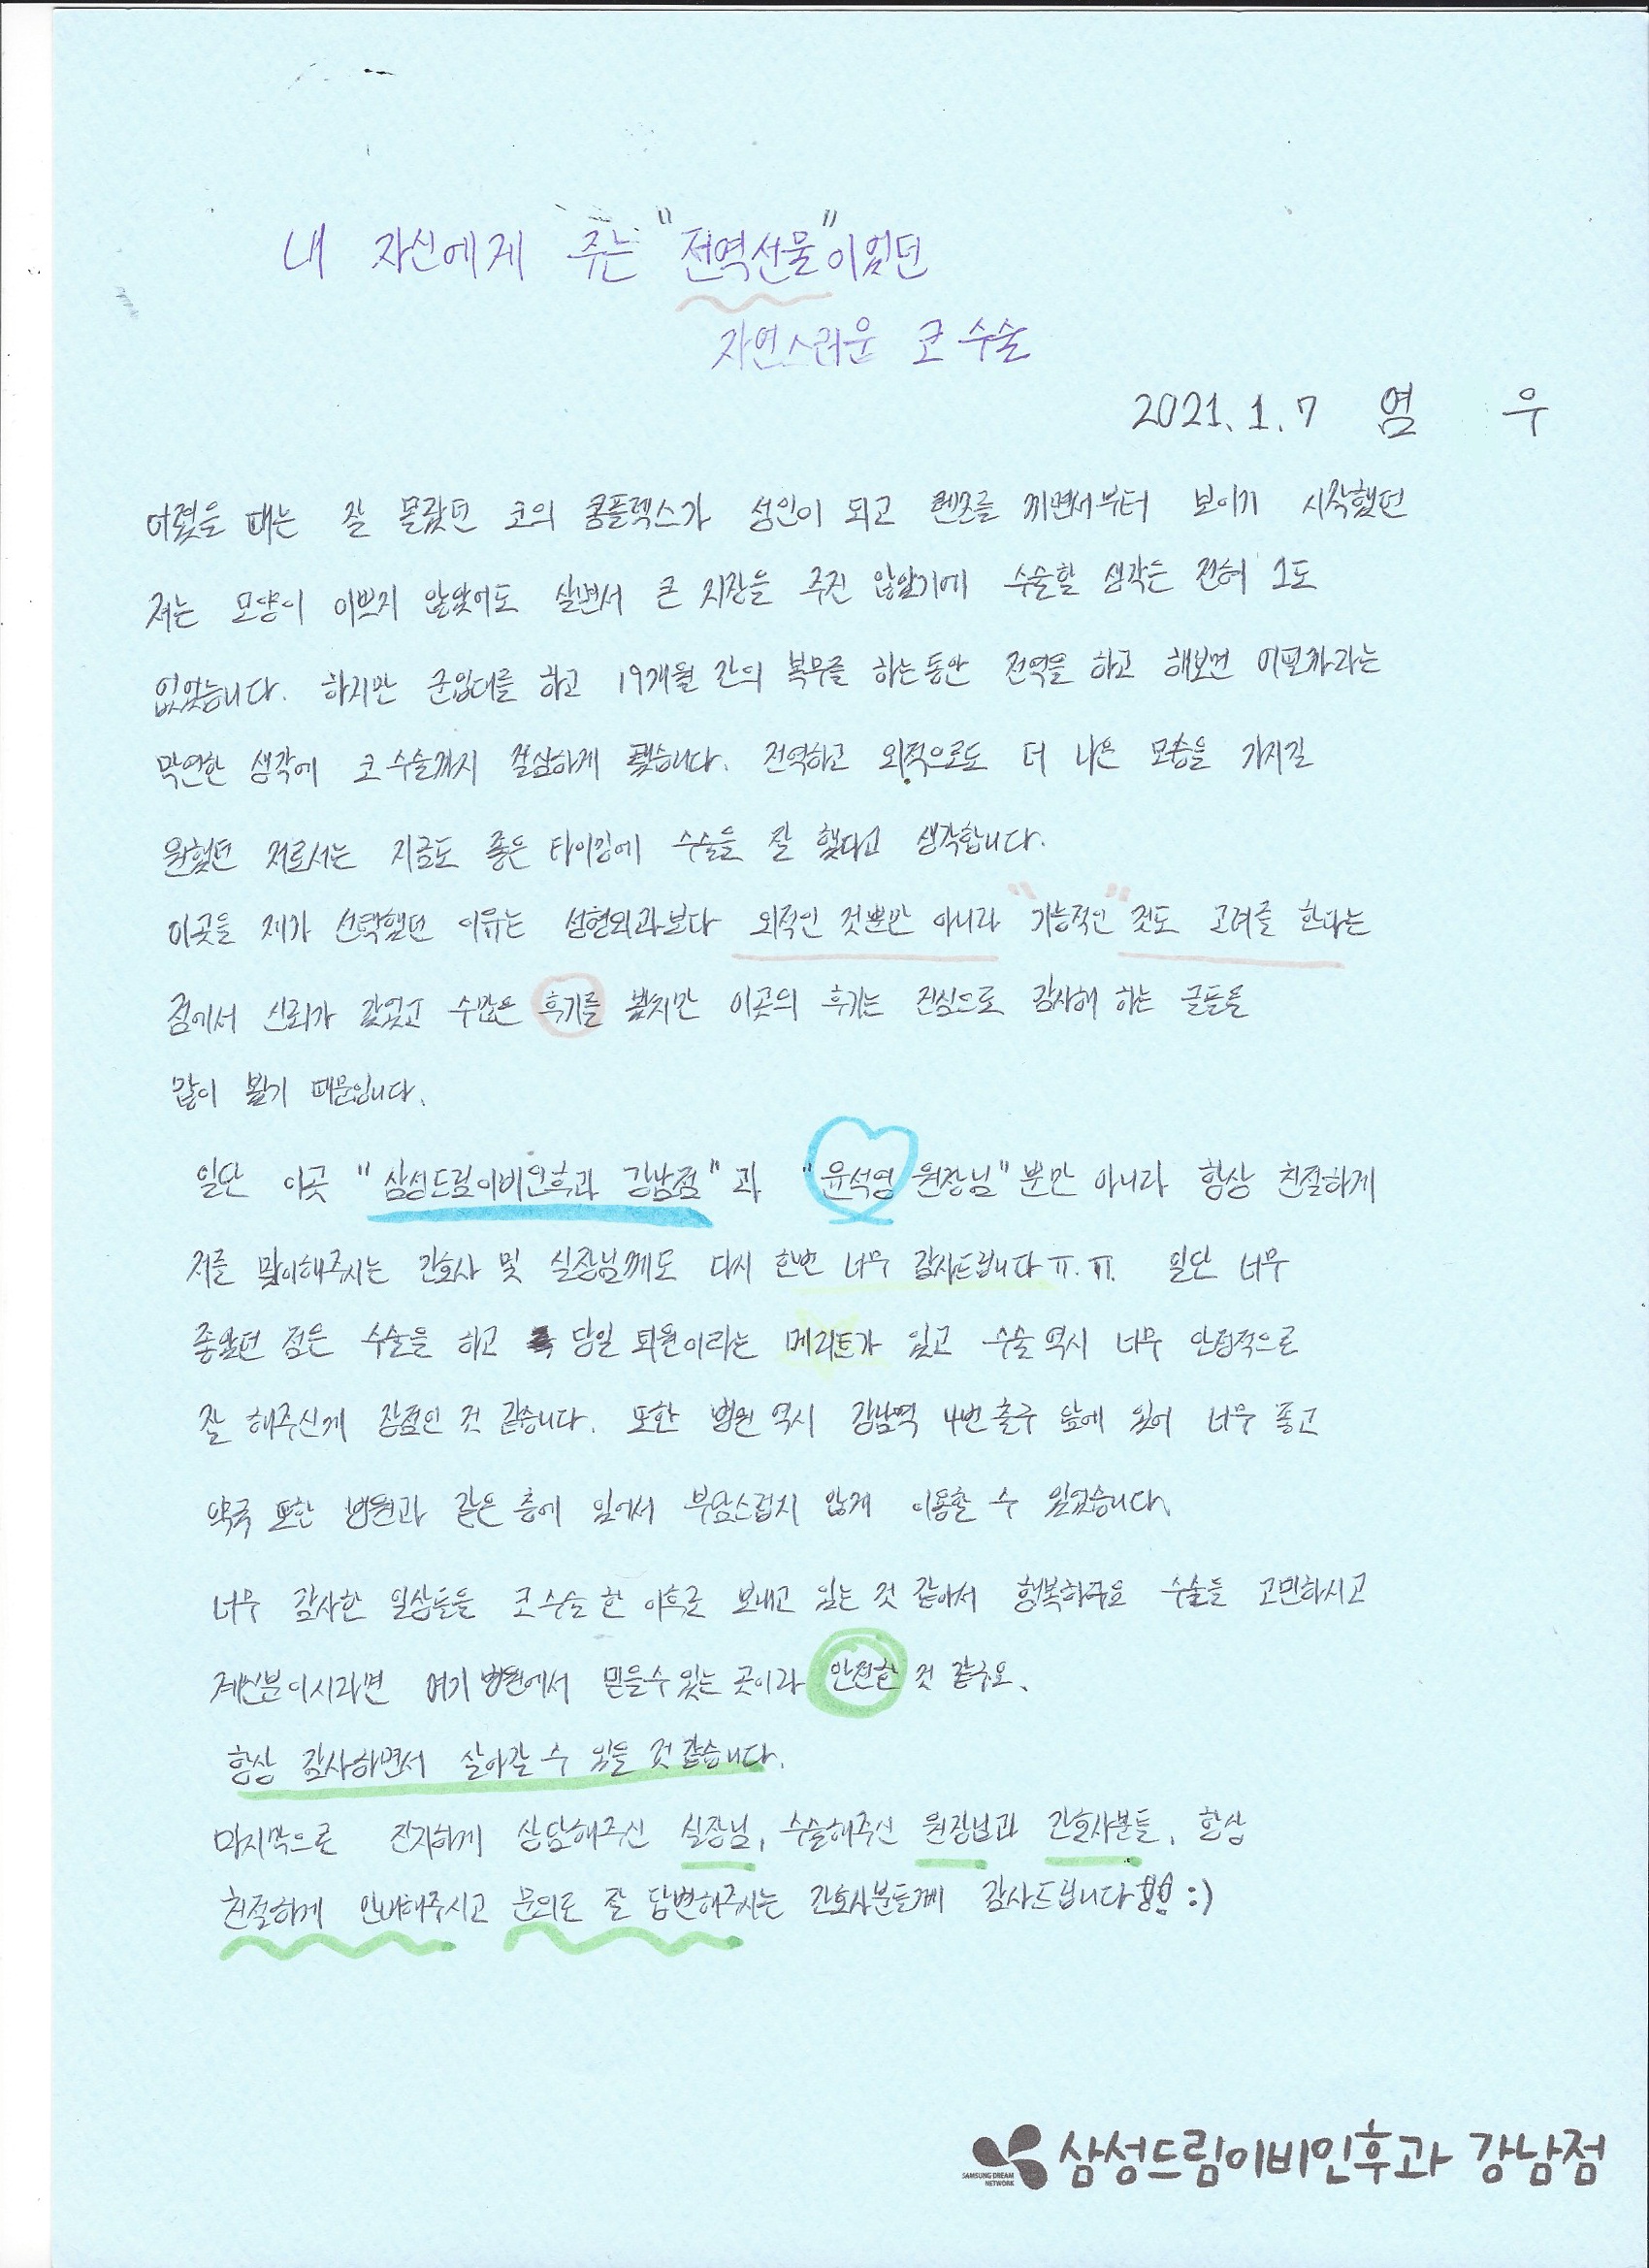 내 자신에게 주는 "전역선물"이었던
자연스러운 코 수술
2021. 1. 7 염 우
어렸을 때는 잘 몰랐던 코의 콤플렉스가 성인이 되고 렌즈를 끼면서부터 보이기 시작했던
저는 모양이 이쁘지 않았어도 살면서 큰 지장을 주진 않았기에 수술할 생각은 전혀 1도
없었습니다. 하지만 군입대를 하고 19개월 간의 복무를 하는동안 전역을 하고 해보면 어떨까라는
막연한 생각에 코 수술까지 결심하게 됐습니다. 전역하고 외적으로도 더 나은 모습을 가지길
원했던 저로서는 지금도 좋은 타이밍에 수술을 잘 했다고 생각합니다.
이곳을 제가 선택했던 이유는 성형외과보다 외적인 것뿐만 아니라 "기능적인" 것도 고려를 한다는
점에서 신뢰가 갔었고 수많은 후기를 봤지만 이곳의 후기는 진심으로 감사해 하는 글들을
많이 봤기 때문입니다.
일단 이곳 "삼성드림이비인후과 강남점"과 "윤석영 원장님"뿐만 아니라 항상 친절하게
저를 맞이해주시는 간호사 및 실장님께도 다시 한번 너무 감사드립니다 ㅠ.ㅠ. 일단 너무
좋았던 점은 수술을 하고 당일 퇴원이라는 메리트가 있고 수술 역시 너무 안정적으로
잘 해주신게 장점인 것 같습니다. 또한 병원 역시 강남역 4번 출구 앞에 있어 너무 좋고
약국 또한 병원과 같은 층에 있어서 부담스럽지 않게 이동할 수 있었습니다.
너무 감사한 일상들을 코수술 한 이후로 보내고 있는 것 같아서 행복하구요 수술을 고민하시고
계신분이시라면 여기 병원에서 믿을수 있는 곳이라 안전한 것 같구요.
항상 감사하면서 살아갈 수 있을 것 같습니다.
마지막으로 진지하게 상담해주신 실장님, 수술해주신 원장님과 간호사분들, 항상
친절하게 안내해주시고 문의도 잘 답변해주시는 간호사분들께 감사드립니다!! :)
SAMSUNG DREAM
NETWORK
삼성드림이비인후과 강남점